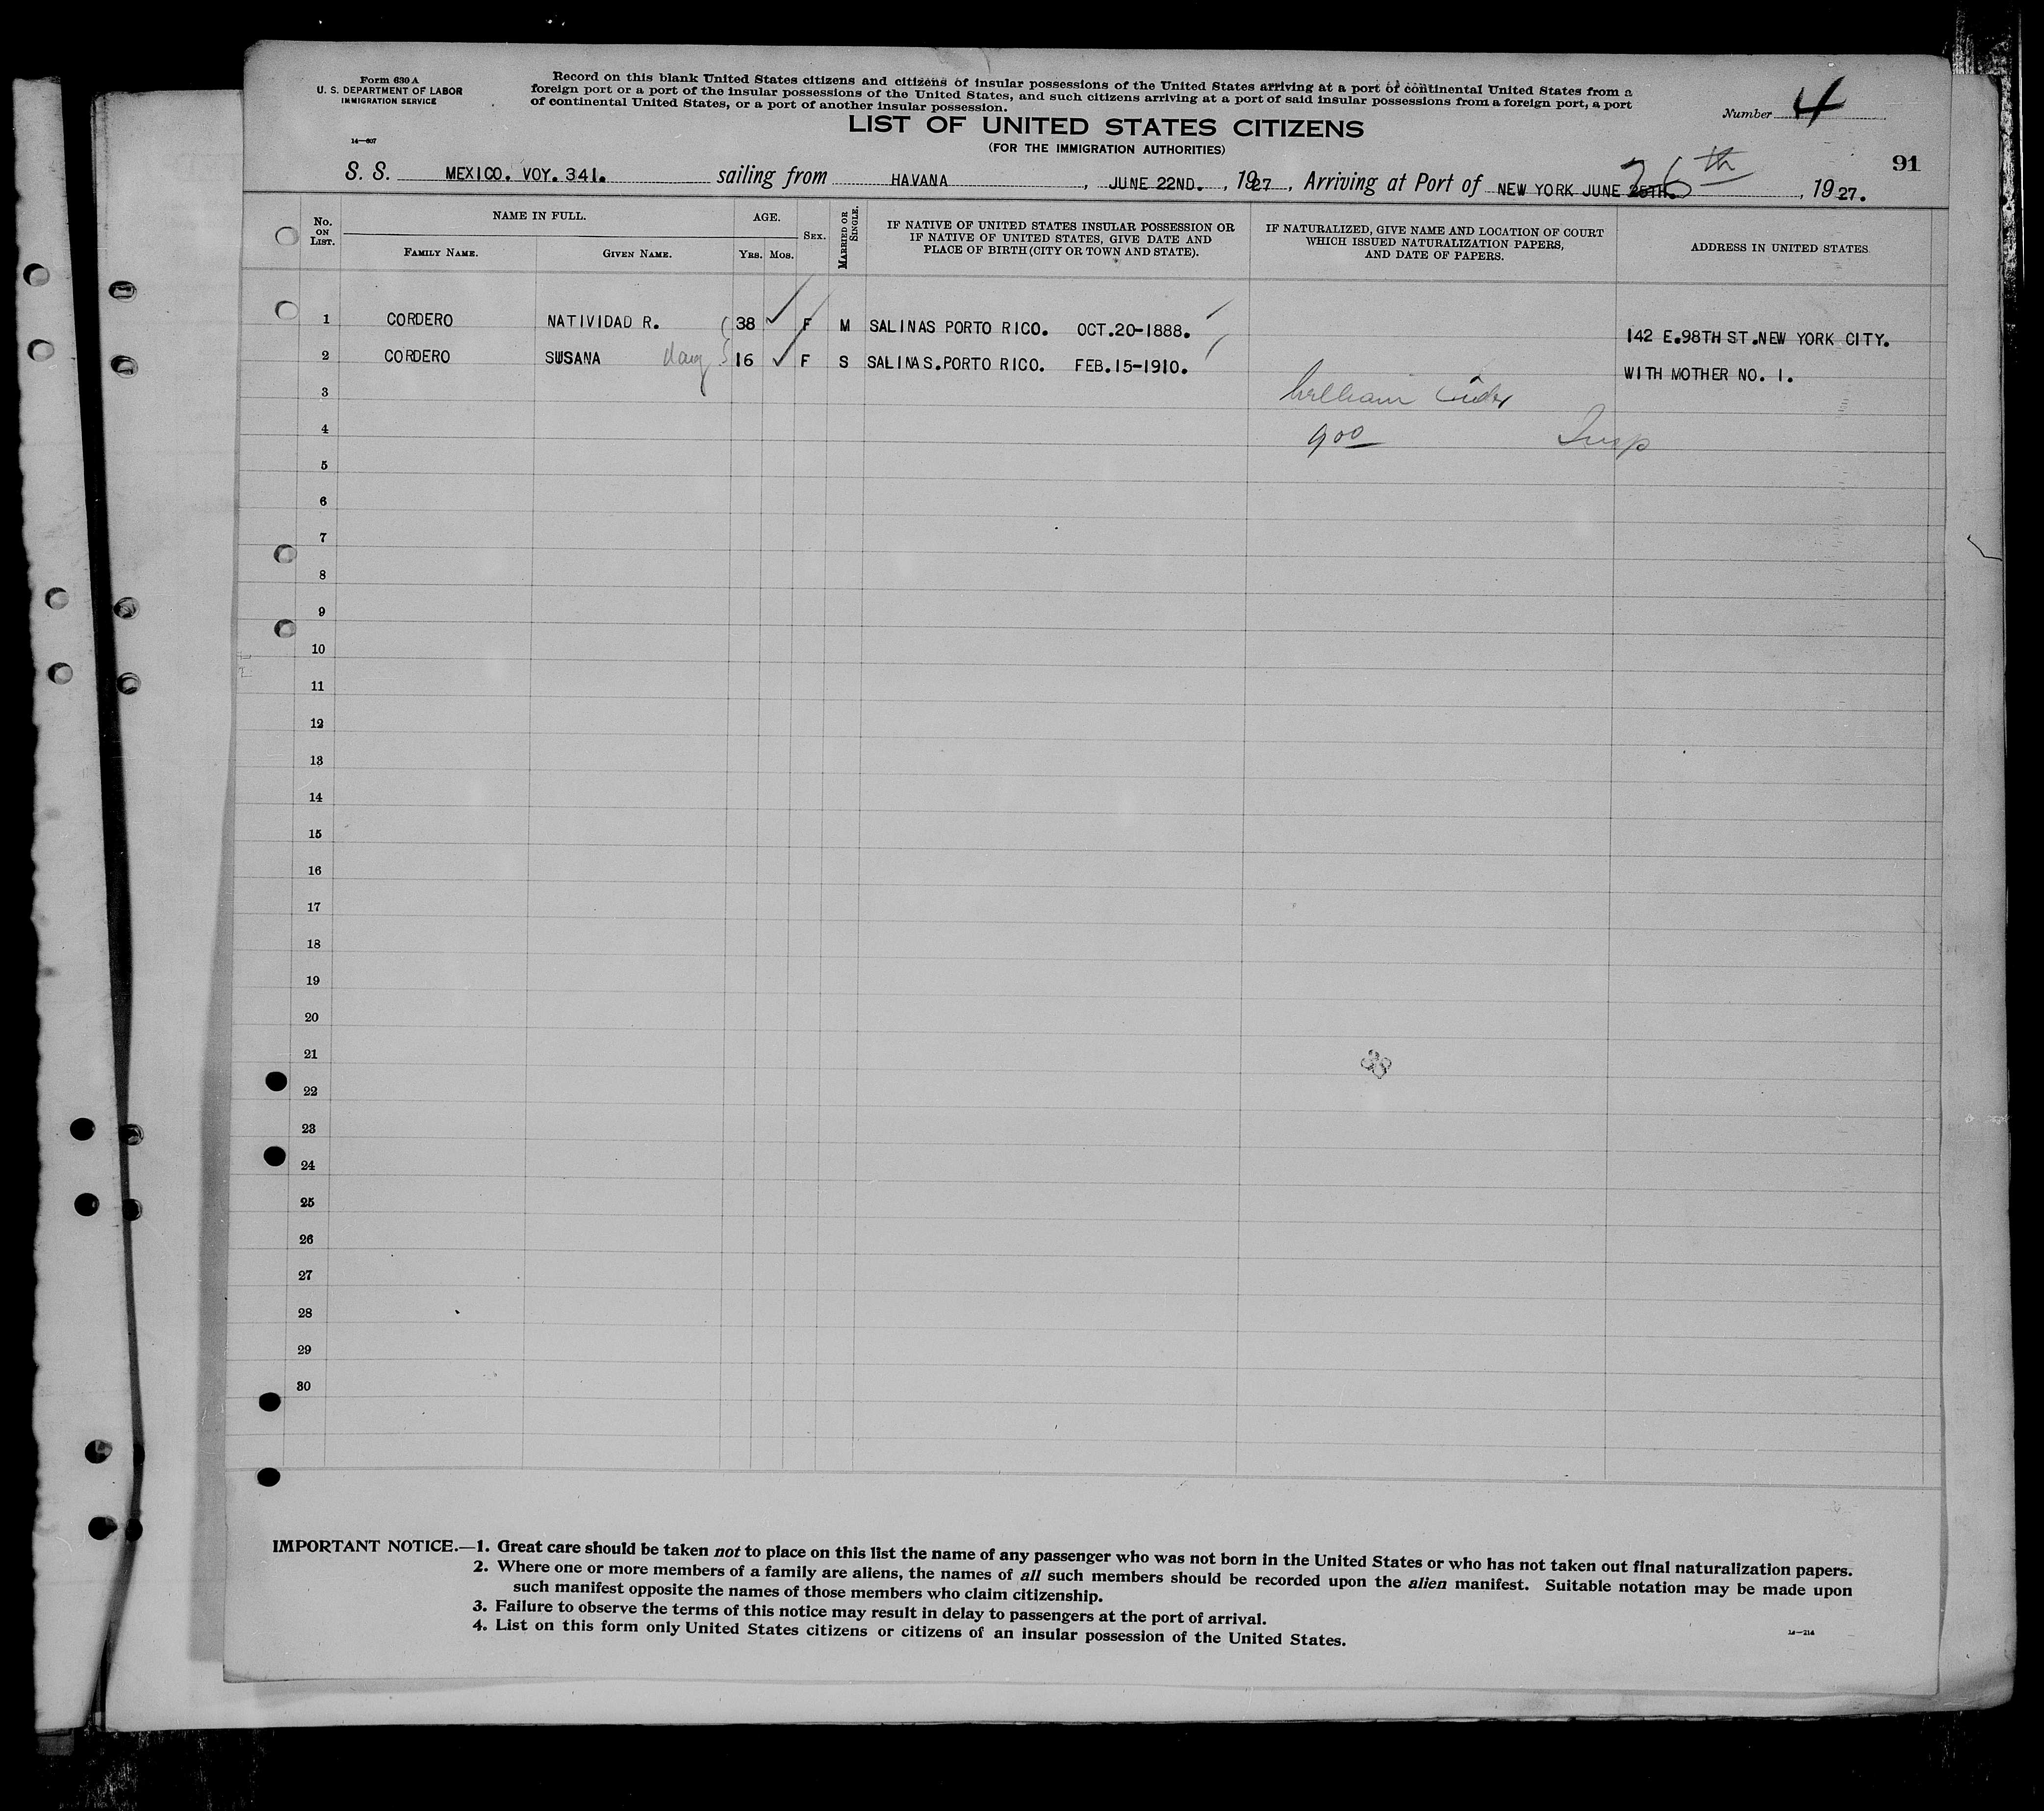 Form 630 A
U. S. DEPARTMENT OF LABOR
IMMIGRATION SERVICE
14—607
Record on this blank United States citizens and citizens of insular possessions of the United States arriving at a port of continental United States from a
foreign port or a port of the insular possessions of the United States, and such citizens arriving at a port of said insular possessions from a foreign port, a port
of continental United States, or a port of another insular possession.
Number 4
LIST OF UNITED STATES CITIZENS
(FOR THE IMMIGRATION AUTHORITIES)
91
S. S. MEXICO. VOY. 341. sailing from HAVANA, JUNE 22ND., 1927, Arriving at Port of NEW YORK JUNE 25TH. 26th, 1927.
No. ON LIST.
NAME IN FULL.
FAMILY NAME.
GIVEN NAME.
AGE.
YRS. MOS.
SEX.
MARRIED OR SINGLE.
IF NATIVE OF UNITED STATES INSULAR POSSESSION OR
IF NATIVE OF UNITED STATES, GIVE DATE AND
PLACE OF BIRTH (CITY OR TOWN AND STATE).
IF NATURALIZED, GIVE NAME AND LOCATION OF COURT
WHICH ISSUED NATURALIZATION PAPERS,
AND DATE OF PAPERS.
ADDRESS IN UNITED STATES
1 CORDERO NATIVIDAD R. 38 F M SALINAS PORTO RICO. OCT.20-1888. 142 E.98TH ST.NEW YORK CITY.
2 CORDERO SUSANA daug 16 F S SALINAS.PORTO RICO. FEB.15-1910. WITH MOTHER NO. 1.
3 William
4 900 Insp
5
6
7
8
9
10
11
12
13
14
15
16
17
18
19
20
21
22
23
24
25
26
27
28
29
30
IMPORTANT NOTICE.—1. Great care should be taken not to place on this list the name of any passenger who was not born in the United States or who has not taken out final naturalization papers.
2. Where one or more members of a family are aliens, the names of all such members should be recorded upon the alien manifest. Suitable notation may be made upon
such manifest opposite the names of those members who claim citizenship.
3. Failure to observe the terms of this notice may result in delay to passengers at the port of arrival.
4. List on this form only United States citizens or citizens of an insular possession of the United States.
14—214